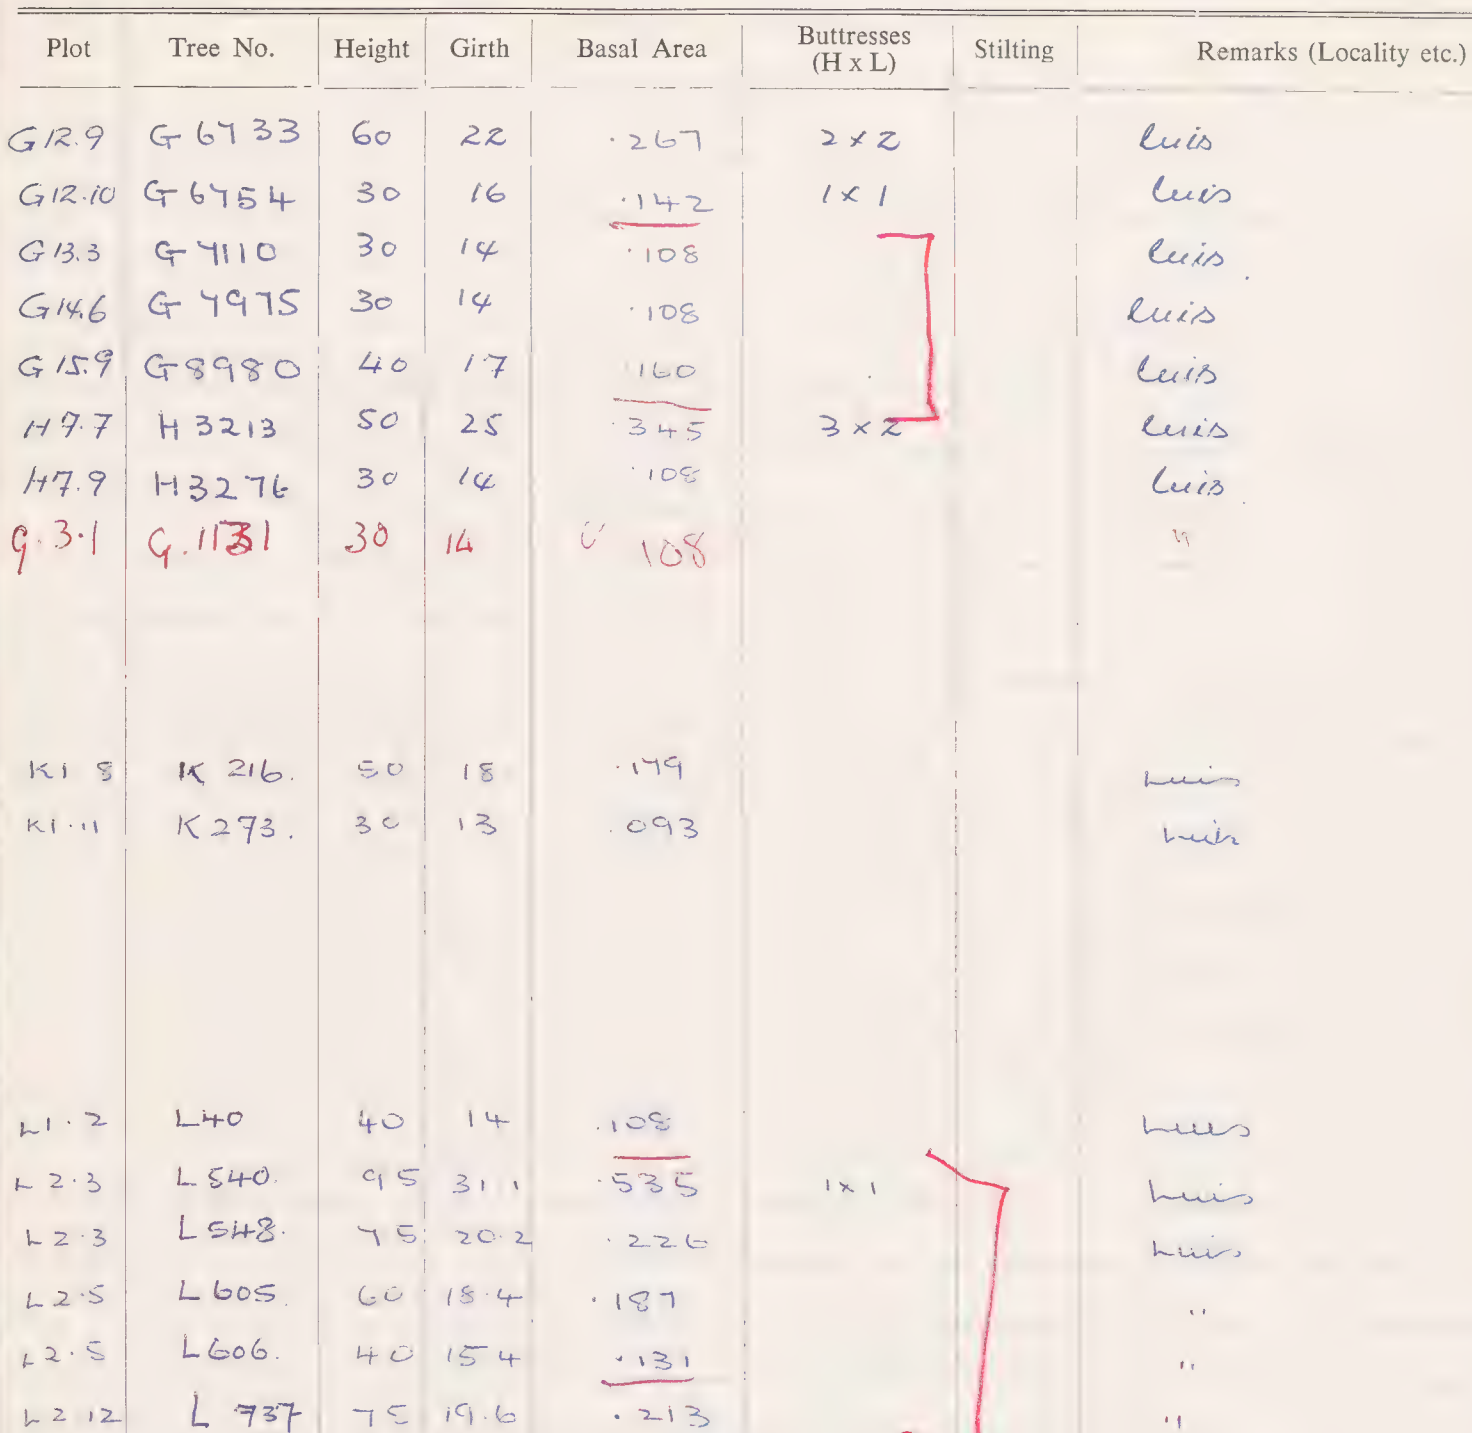 Plot Tree No. Height Girth Basal Area Buttresses (H x L) Stilting Remarks (Locality etc.)
G12.9 G 6733 60 22 .267 2 x 2 Luis
G12.10 G 6754 30 16 .142 1 x 1 Luis
G13.3 G 7110 30 14 .108 Luis
G14.6 G 7975 30 14 .108 Luis
G15.9 G8980 40 17 .160 Luis
H7.7 H 3213 50 25 .345 3 x 2 Luis
H7.9 H3276 30 14 .108 Luis
G.3.1 G.1131 30 14 108 "
K1 8 K 216. 50 18 .179 Luis
K1.11 K273. 30 13 .093 Luis
L1.2 L40 40 14 .108 Luis
L2.3 L540. 95 31.1 .535 1x1 Luis
L2.3 L548. 75 20.2 .226 Luis
L2.5 L605. 60 18.4 .187 "
L2.5 L606. 40 15 4 .131 "
L2 12 L 737 75 19.6 .213 "